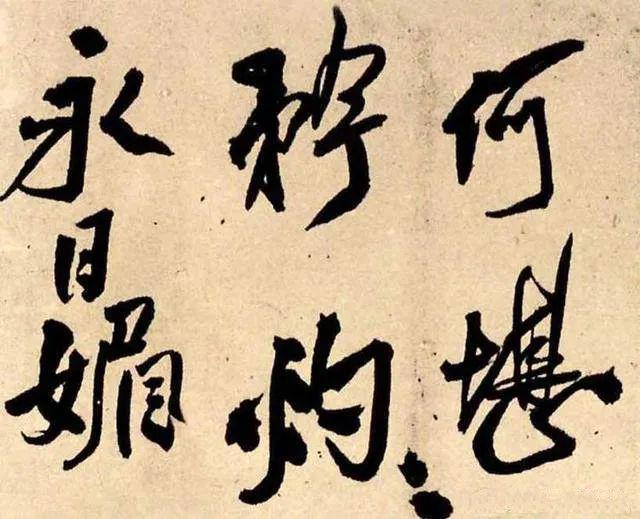 何堪
矜灼〻
永日媚